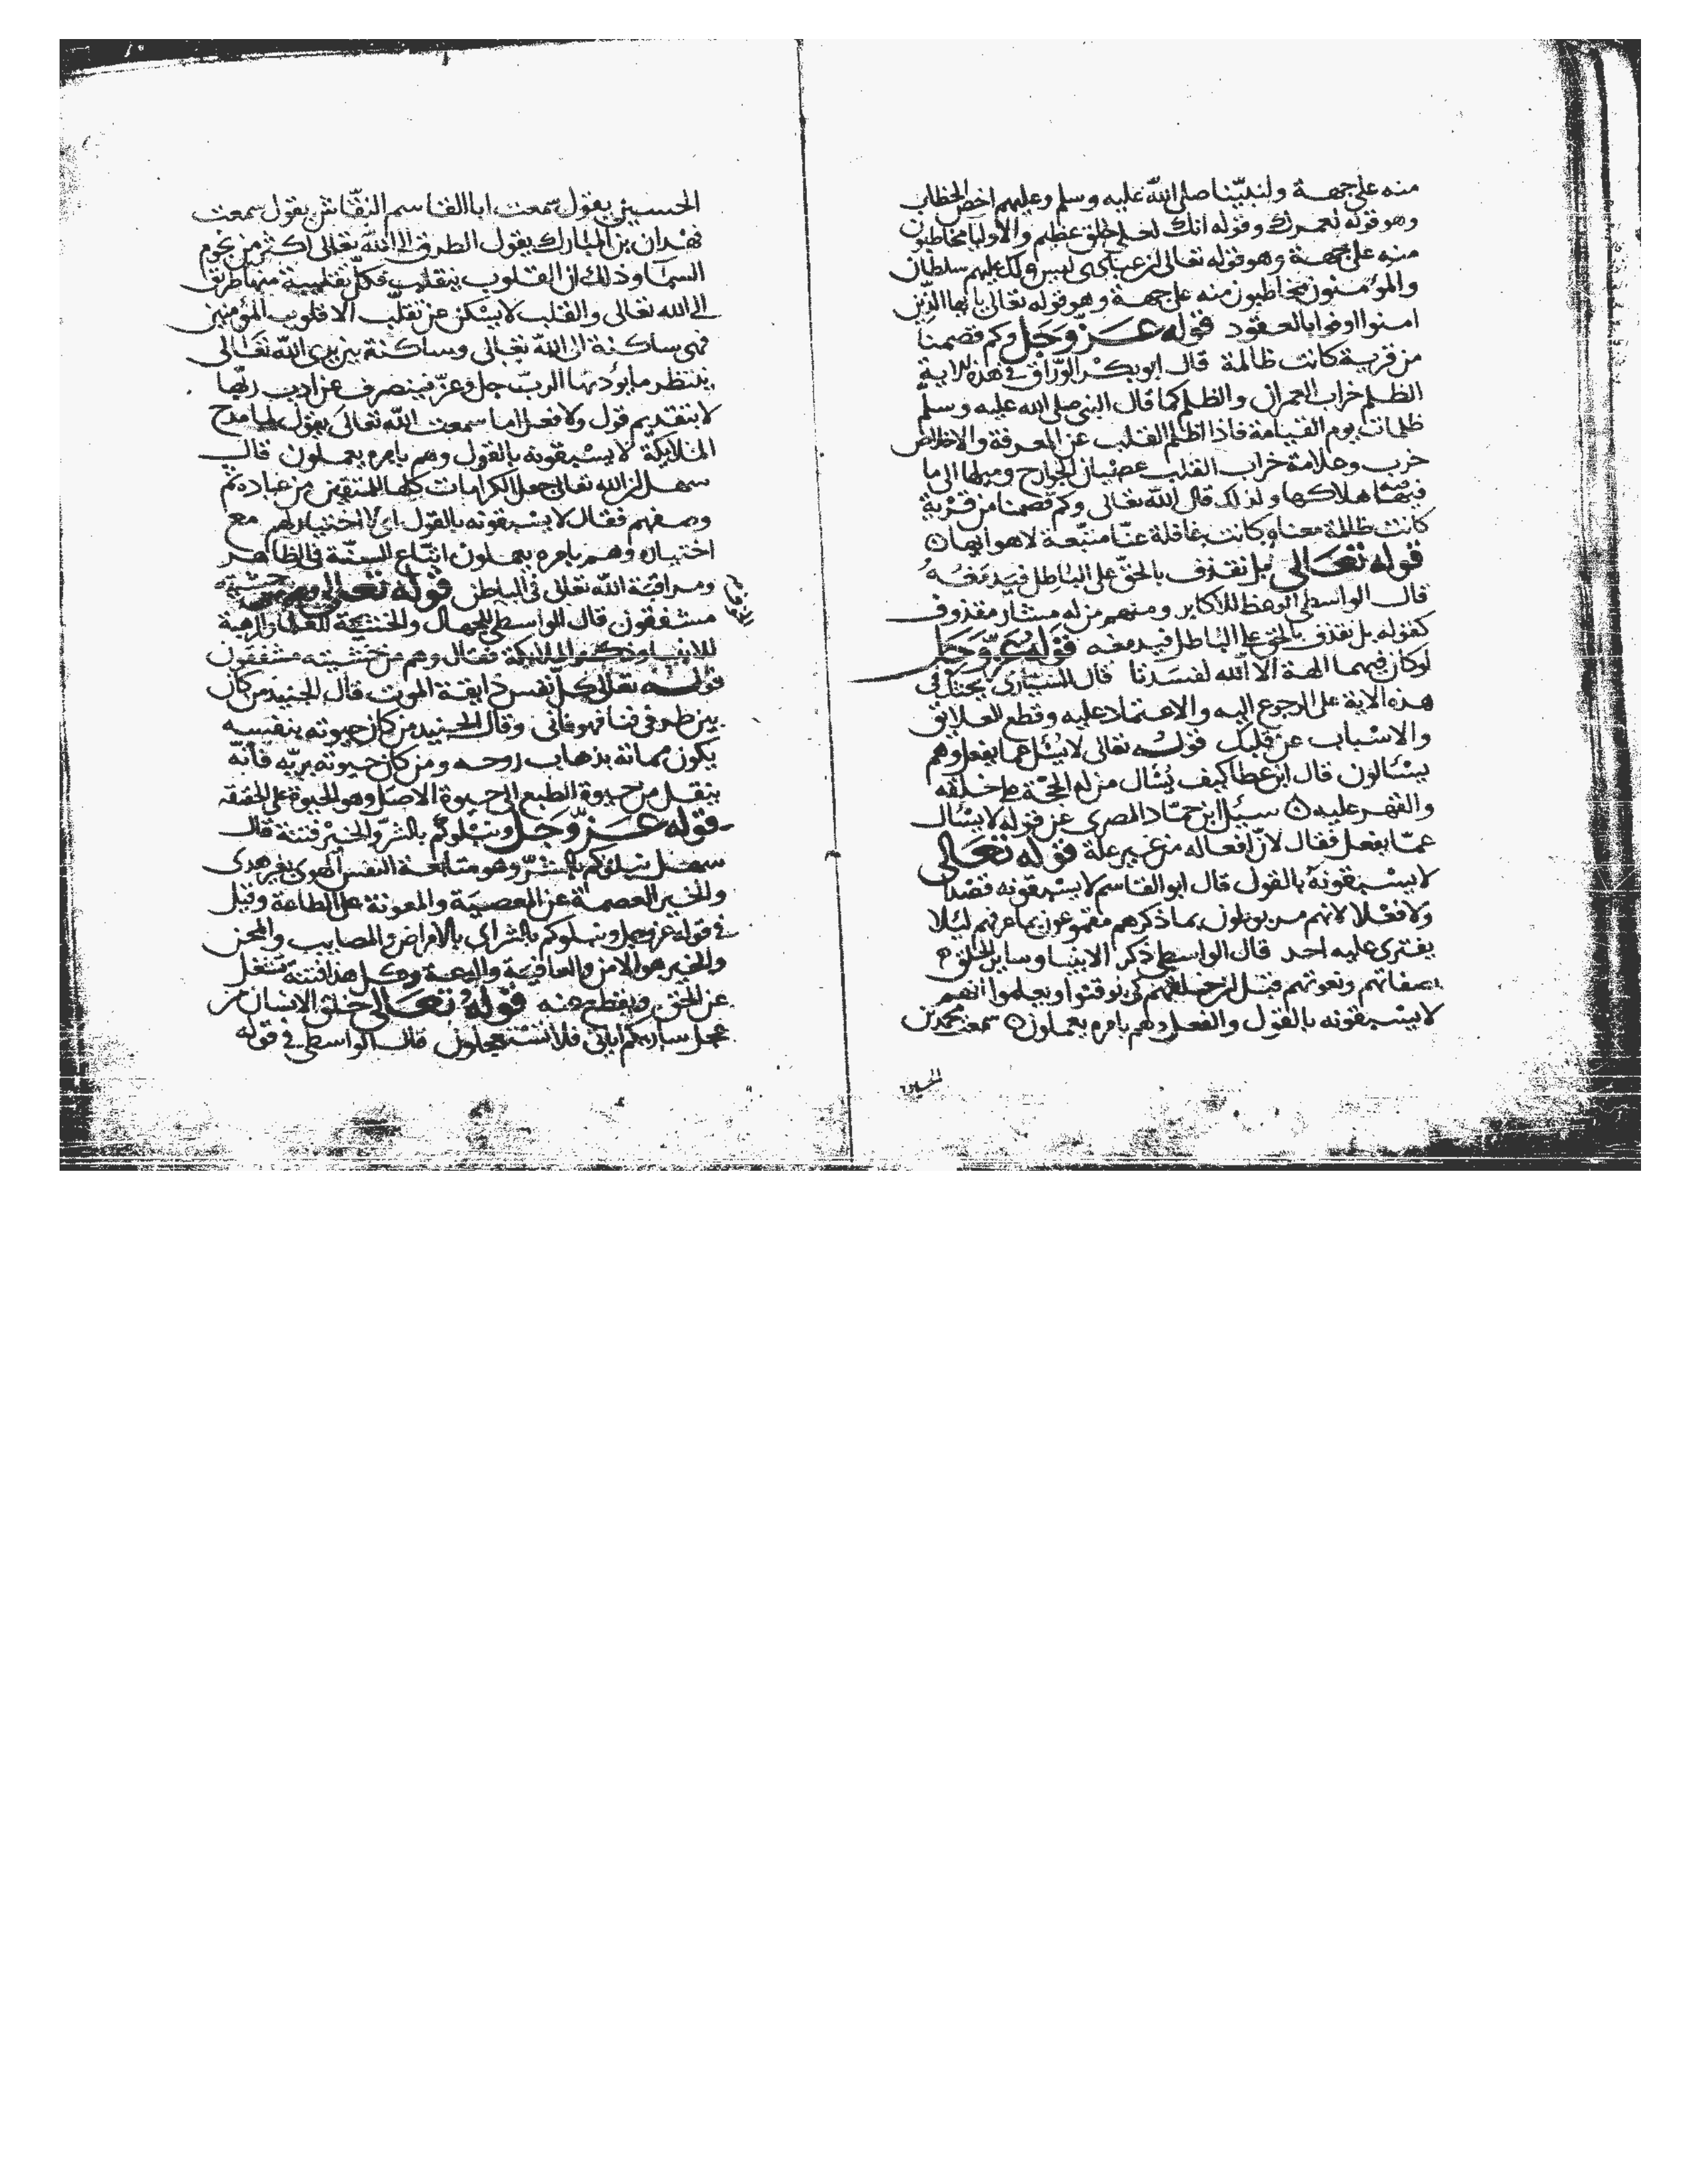 منه على جهة ولنبيّنا صلى الله عليه وسلم وعليهم اخص الخطاب
وهو قوله لعمرك وقوله انك لعلى خلق عظيم والاوليا مخاطبون
منه على جهة وهو قوله تعالى ان عبادى ليس لك عليهم سلطان
والمؤمنون مخاطبون منه على جهة وهو قوله تعالى يا ايها الذين
امنوا اوفوا بالعقود قوله عزّ وجل وكم قصمنا
من قرية كانت ظالمة قال ابو بكر الورّاق فى هذه الاية
الظلم خراب العمران والظلم كما قال النبى صلى الله عليه وسلم
ظلمات يوم القيامة فاذا اظلم القلب عن المعرفة والاخلاص
خرب وعلامة خراب القلب عصيان الجوارح وميلها الى ما
فيه هلاكها ولذلك قال الله تعالى وكم قصمنا من قرية
كانت ظالمة معناه كانت غافلة عنّا متبعة لاهوايها
قوله تعالى بل نقذف بالحق على الباطل فيدمغه
قال الواسطى الوعظ للاكابر ومنهم من له مقذوف
كقوله بل نقذف بالحق على الباطل فيدمغه قوله عزّ وجل
لو كان فيهما الهة الا الله لفسدتا قال السيّارى يحثك فى
هذه الاية على الرجوع اليه والاعتماد عليه وقطع العلايق
والاسباب عن قلبك قوله تعالى لا يسئل عما يفعل وهم
يسئالون قال ابن عطا كيف يسئال من له الحجّة على خلقه
والقهر عليه سيل ابن حمّاد المصرى عن قوله لا يسئال
عمّا يفعل فقال لان افعاله من غير علة قوله تعالى
لا يسبقونه بالقول قال ابو القاسم لا يسبقونه قصدًا
ولا فعلا لانهم بما ذكرهم بما عرفهم ليلا
يفترى عليه احد قال الواسطى ذكر الانبيا وساير الخلق
بصفاتهم ونعوتهم قبل ان خلقهم كى يوقنوا ويعلموا انهم
لا يسبقونه بالقول والفعل وهم بامره يعملون سمعت محمد بن
الحسين
الحسين يقول سمعت ابا القاسم النقّاش يقول سمعت
بن المبارك يقول الطرق الى الله تعالى اكثر من نجوم
السما وذلك ان القلوب يتقلب فكلّ تقليبة منها طريق
الى الله تعالى والقلب لا يسكن عن تقلّب الا قلوب المؤمنين
فهى ساكنة الى الله تعالى وساكنة بين يدى الله تعالى
ينتظر ما يؤدبها الربّ جل وعزّ فينصرف عن ادب ربّها
لا بتقديم قول ولا فعل اما سمعت الله تعالى يقول لما مدح
الملايكة لا يسبقونه بالقول وهم بامره يعملون قال
سهل ان الله تعالى جعل الكرامات كلها للمتقين من عباده ثم
وصفهم فقال لا يسبقونه بالقول اى لا اختيار لهم مع
اختياره وهم بامره يعملون اتّباع السنّة فى الظاهر
ومراقبة الله تعالى فى الباطن قوله تعالى وهم من خشيته
مشفقون قال الواسطى للجهال والخشية للعلما والرهبة
للانبيا وذكر الملايكة فقال وهم من خشيته مشفقون
قوله تعالى كل نفس ذايقة الموت قال الجنيد من كان
بين طرفى فنا فهو فانى وقال الجنيد من كان حيوته بنفسه
يكون مماته بذهاب روحه ومن كان حيوته بربّه فانّه
ينقل من حيوة الطبع الى حيوة الاصل وهو الحيوة على الحقيقة
قوله عزّ وجل ونبلوكم بالشرّ والخير فتنة قال
سهل نبلوكم بالشرّ وهو متابعة النفس الهوى بغير هدى
والخير العصمة عن المعصية والمعونة على الطاعة وقيل
فى قوله عز وجل ونبلوكم بالشر اى بالامراض والمصايب والمحن
والخير هو الامن والعافية والنعمة وكل هذا فتنة تشغل
عن الحق ويقطع عنه قوله تعالى خلق الانسان من
عجل ساريكم اياتى فلا تستعجلون قال الواسطى فى قوله